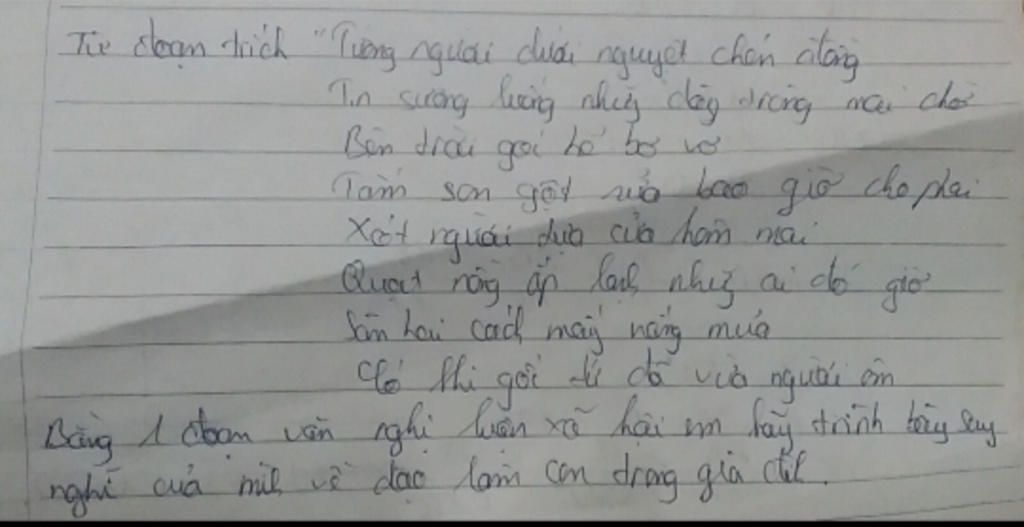 Từ đoạn trích "Tưởng người dưới nguyệt chén đồng
Tin sương luống những dày trông mai chờ
Bên trời góc bể bơ vơ
Tấm son gột rửa bao giờ cho phai
Xót người tựa cửa hôm mai
Quạt nồng ấp lạnh những ai đó giờ
Sân Lai cách mấy nắng mưa
Có khi gốc tử đã vừa người ôm
Bằng 1 đoạn văn nghị luận xã hội em hãy trình bày suy
nghĩ của mình về đạo làm con trong gia đình.